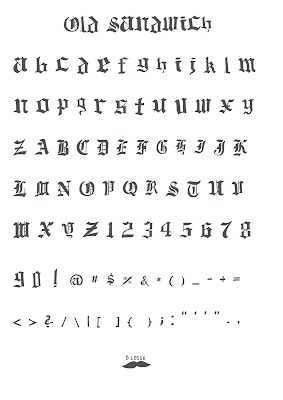 Old Sandwich
a b c d e f g h i j k l m
n o p q r s t u v w x y
z A B C D E F G H I J K
L M N O P Q R S T U V
W X Y Z 1 2 3 4 5 6 7 8
9 0 ! @ # $ % & * ( ) _ - + =
< > ? / \ | [ ] { } ; : " ' ' " . ,
D.LOSSE